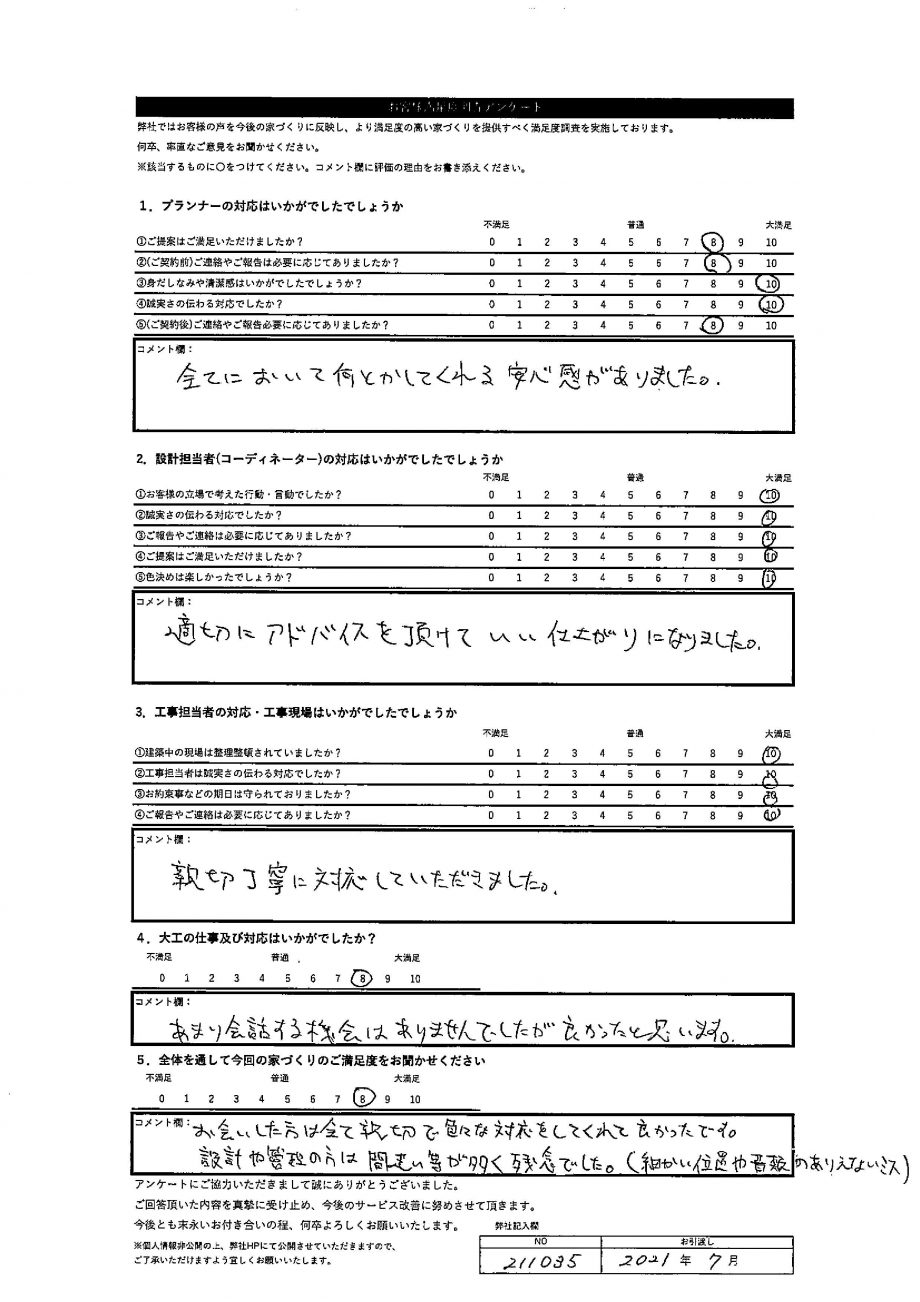 お客様満足度調査アンケート
弊社ではお客様の声を今後の家づくりに反映し、より満足度の高い家づくりを提供すべく満足度調査を実施しております。
何卒、率直なご意見をお聞かせください。
※該当するものに〇をつけてください。コメント欄に評価の理由をお書き添えください。
1．プランナーの対応はいかがでしたでしょうか
不満足 普通 大満足
①ご提案はご満足いただけましたか？ 0 1 2 3 4 5 6 7 8 9 10
②(ご契約前)ご連絡やご報告は必要に応じてありましたか？ 0 1 2 3 4 5 6 7 8 9 10
③身だしなみや清潔感はいかがでしたでしょうか？ 0 1 2 3 4 5 6 7 8 9 10
④誠実さの伝わる対応でしたか？ 0 1 2 3 4 5 6 7 8 9 10
⑤(ご契約後)ご連絡やご報告必要に応じてありましたか？ 0 1 2 3 4 5 6 7 8 9 10
コメント欄：
全てにおいて何とかしてくれる安心感がありました。
2．設計担当者(コーディネーター)の対応はいかがでしたでしょうか
不満足 普通 大満足
①お客様の立場で考えた行動・言動でしたか？ 0 1 2 3 4 5 6 7 8 9 10
②誠実さの伝わる対応でしたか？ 0 1 2 3 4 5 6 7 8 9 10
③ご報告やご連絡は必要に応じてありましたか？ 0 1 2 3 4 5 6 7 8 9 10
④ご提案はご満足いただけましたか？ 0 1 2 3 4 5 6 7 8 9 10
⑤色決めは楽しかったでしょうか？ 0 1 2 3 4 5 6 7 8 9 10
コメント欄：
適切にアドバイスを頂けていい仕上がりになりました。
3．工事担当者の対応・工事現場はいかがでしたでしょうか
不満足 普通 大満足
①建築中の現場は整理整頓されていましたか？ 0 1 2 3 4 5 6 7 8 9 10
②工事担当者は誠実さの伝わる対応でしたか？ 0 1 2 3 4 5 6 7 8 9 10
③お約束事などの期日は守られておりましたか？ 0 1 2 3 4 5 6 7 8 9 10
④ご報告やご連絡は必要に応じてありましたか？ 0 1 2 3 4 5 6 7 8 9 10
コメント欄：
親切丁寧に対応していただきました。
4．大工の仕事及び対応はいかがでしたか？
不満足 普通 大満足
0 1 2 3 4 5 6 7 8 9 10
コメント欄：
あまり会話する機会はありませんでしたが良かったと思います。
5．全体を通して今回の家づくりのご満足度をお聞かせください
不満足 普通 大満足
0 1 2 3 4 5 6 7 8 9 10
コメント欄：お会いした方は全て親切で色々な対応をしてくれて良かったです。
設計や管理の方は間違い等が多く残念でした。(細かい位置や のありえないミス)
アンケートにご協力いただきまして誠にありがとうございました。
ご回答頂いた内容を真摯に受け止め、今後のサービス改善に努めさせて頂きます。
今後とも末永いお付き合いの程、何卒よろしくお願いいたします。
弊社記入欄
※個人情報非公開の上、弊社HPにて公開させていただきますので、
ご了承いただけますよう宜しくお願いいたします。
NO お引渡し
211035 2021年 7月